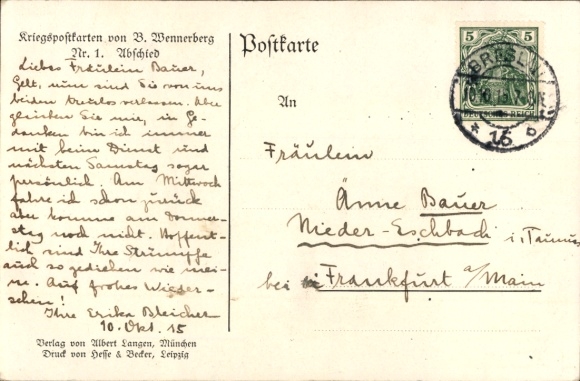 Kriegspostkarten von B. Wennerberg
Nr. 1. Abschied
Liebes Fräulein Bauer,
Gelt, nun sind Sie von uns
beiden treulos verlassen. Aber
gleichen Sie mir, in Ge-
danken bin ich immer
mit beim Dienst und
nächsten Samstag sogar
persönlich. Am Mittwoch
fahre ich schon zurück
aber komme am Donners-
tag noch nicht. Hoffent-
lich sind Ihre Strümpfe
auch so gediehen wie mei-
ne. Auf frohes Wieder-
sehen!
Ihre Erika Bleicher
10. Okt. 15
Verlag von Albert Langen, München
Druck von Hesse & Becker, Leipzig
Postkarte
An
Fräulein
Änne Bauer
Nieder-Eschbach i. Taunus
bei Frankfurt a/Main
5 5
DEUTSCHES REICH
BRESLAU
* 15 b